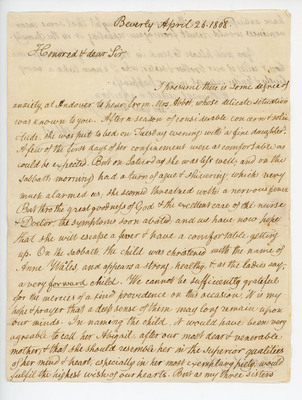 Beverly April 26. 1808
Honored & dear Sir,
I presume there is some degree of
anxiety at Andover to hear from Mrs. Abbot, whose delicate situation
was known to you. After a season of considerable concern & soli
citude she was put to bed on Tuesday evening with a fine daughter.
A few of the first days of her confinement were as comfortable as
could be expected. But on Saturday she was less well, and on the
Sabbath morning had a turn of ague & shivering which very
much alarmed us, she seemed threatened with a nervous fever.
But thro the great goodness of God & the excellent care of the nurse
& Doctor the symptoms soon abated, and we have now hope
that she will escape a fever & have a comfortable getting
up. On the sabbath the child was christened with the name of
Anne Wales, and appears a strong, healthy, & as the ladies say,
a very forward child. We cannot be sufficiently grateful
for the mercies of a kind providence on this occasion; it is my
hope & prayer that a deep sense of them may long remain upon
our minds. In naming the child, it would have been very
agreeable to call her Abigail after our most dear & venerable
mother, & that she should resemble her in the superior qualities
of her mind & heart, especially in her most exemplary piety, would
fulfil the highest wish of our hearts. But as my three sisters